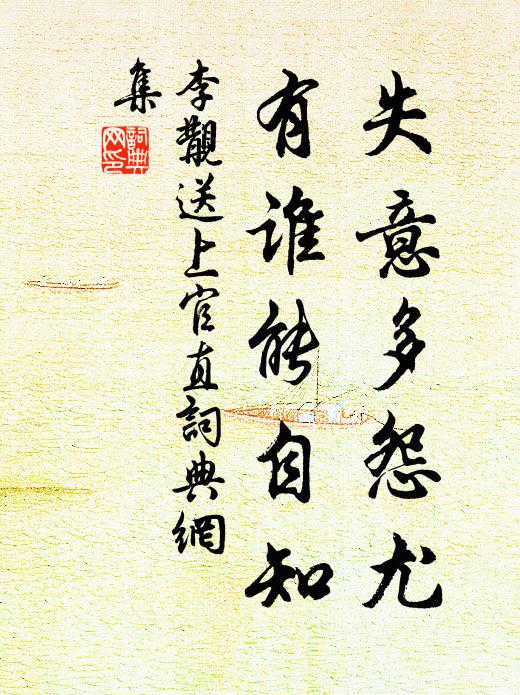 失意多怨尤
有誰能自知
李覯送上官直詞典網
集
詞典
网印